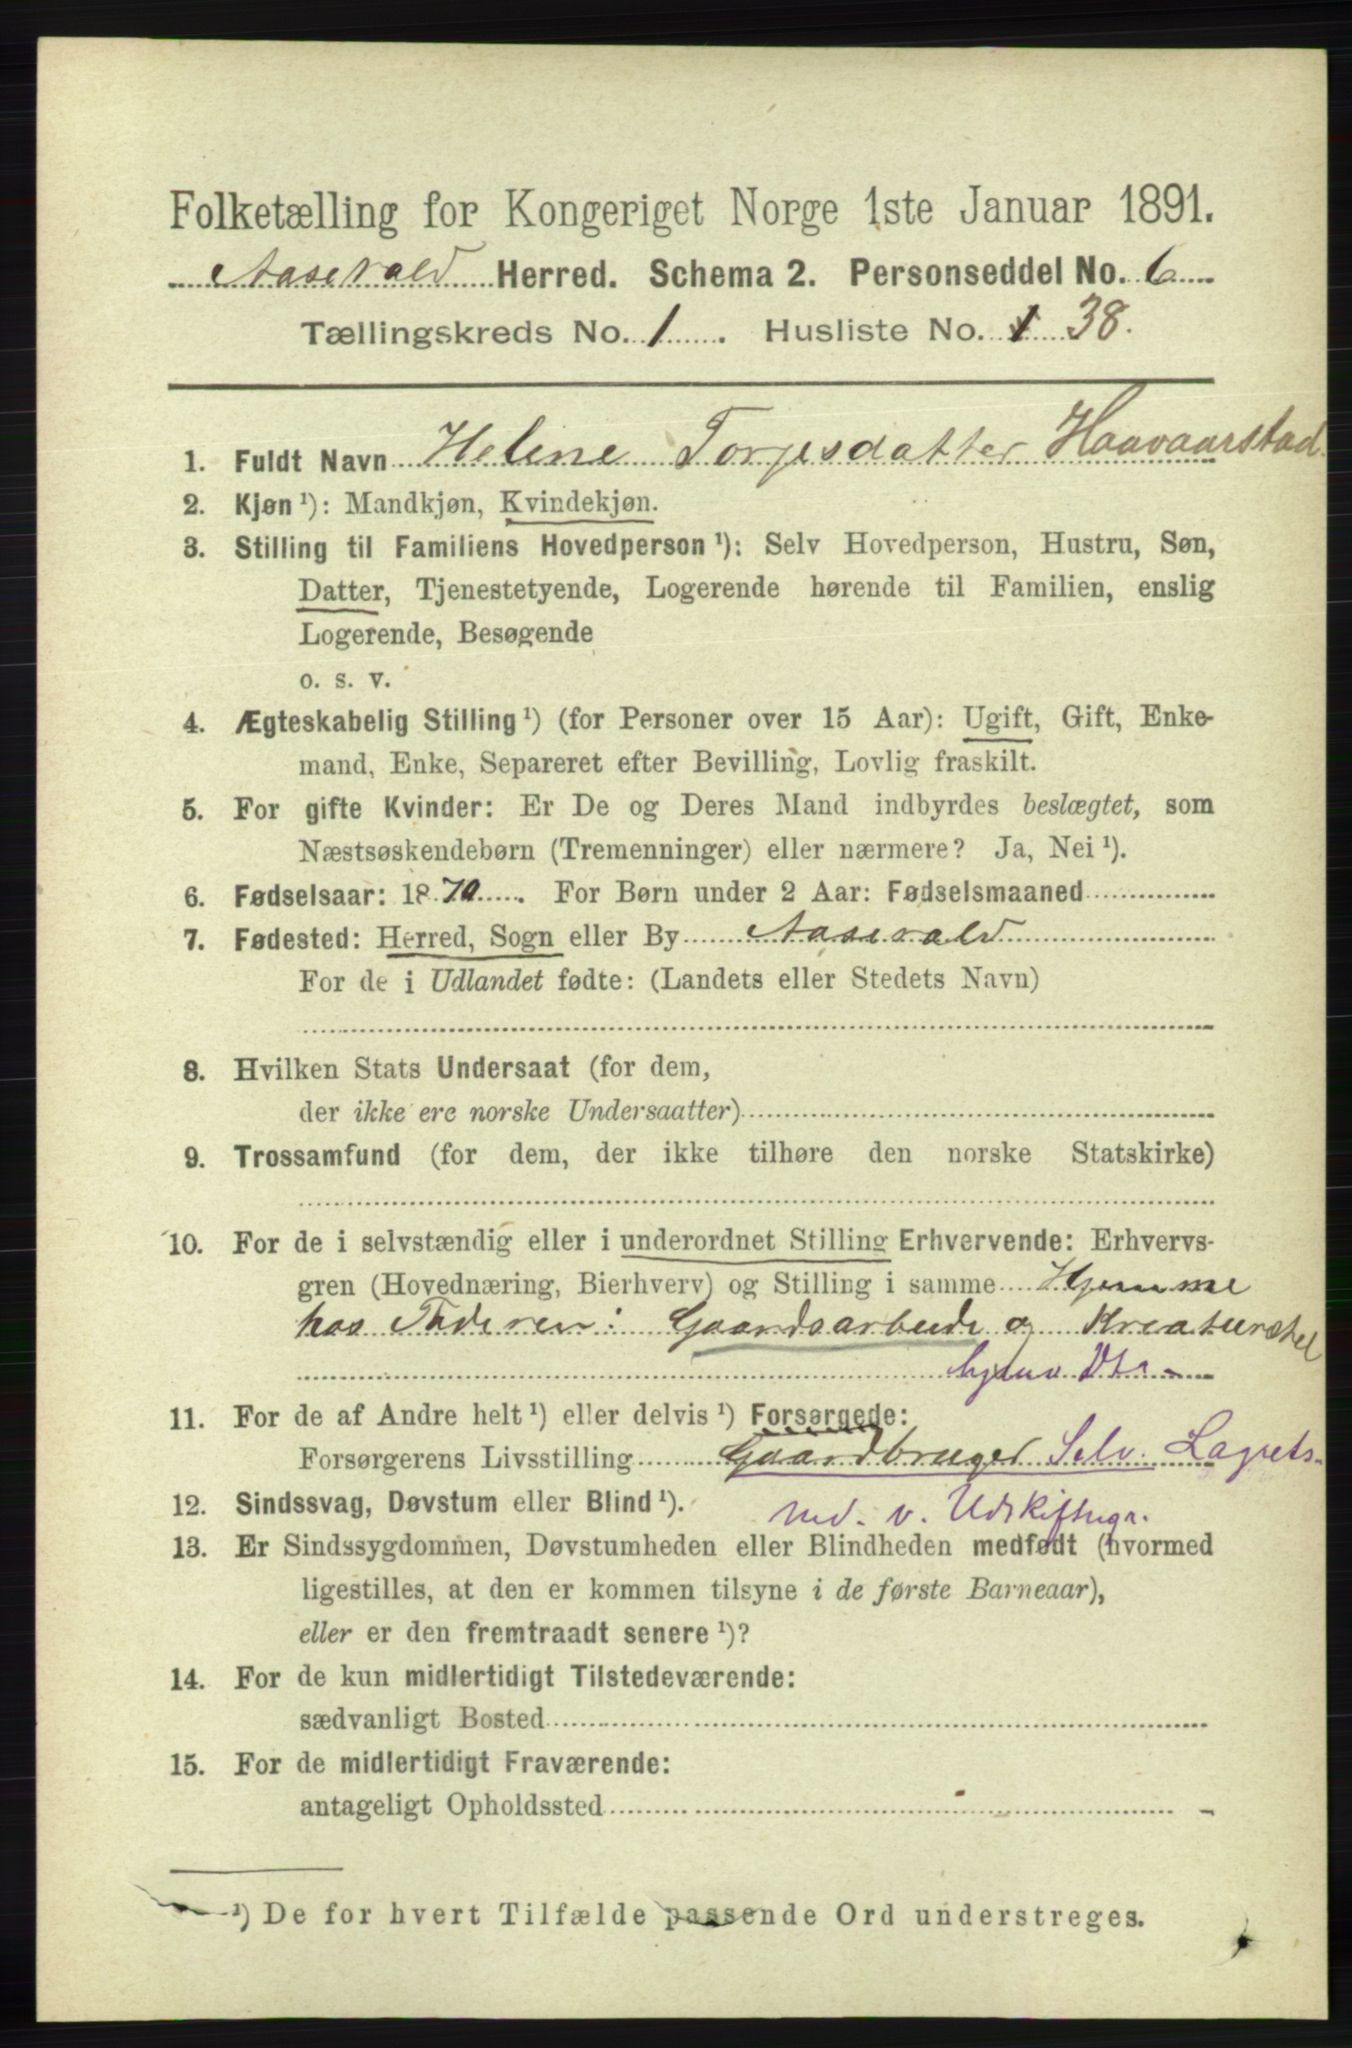 Folketælling for Kongeriget Norge 1ste Januar 1891.
Aaserald Herred. Schema 2. Personseddel No. 6
Tællingskreds No. 1 . Husliste No. 1 38.
1. Fuldt Navn Heline Torjesdatter Haavaarstad
2. Kjøn ¹): Mandkjøn, Kvindekjøn.
3. Stilling til Familiens Hovedperson ¹): Selv Hovedperson, Hustru, Søn,
Datter, Tjenestetyende, Logerende hørende til Familien, enslig
Logerende, Besøgende
o. s. v.
4. Ægteskabelig Stilling ¹) (for Personer over 15 Aar): Ugift, Gift, Enke-
mand, Enke, Separeret efter Bevilling, Lovlig fraskilt.
5. For gifte Kvinder: Er De og Deres Mand indbyrdes beslægtet, som
Næstsøskendebørn (Tremenninger) eller nærmere? Ja, Nei ¹).
6. Fødselsaar: 1870 . For Børn under 2 Aar: Fødselsmaaned
7. Fødested: Herred, Sogn eller By Aaserald
For de i Udlandet fødte: (Landets eller Stedets Navn)
8. Hvilken Stats Undersaat (for dem,
der ikke ere norske Undersaatter)
9. Trossamfund (for dem, der ikke tilhøre den norske Statskirke)
10. For de i selvstændig eller i underordnet Stilling Erhvervende: Erhvervs-
gren (Hovednæring, Bierhverv) og Stilling i samme Hjemme
hos Faderen: Gaardsarbeide og Kreaturstel
11. For de af Andre helt ¹) eller delvis ¹) Forsørgede:
Forsørgerens Livsstilling Gaardbruger Selv. Lagrets-
12. Sindssvag, Døvstum eller Blind ¹). md. v. Udskiftngr.
13. Er Sindssygdommen, Døvstumheden eller Blindheden medfødt (hvormed
ligestilles, at den er kommen tilsyne i de første Barneaar),
eller er den fremtraadt senere ¹)?
14. For de kun midlertidigt Tilstedeværende:
sædvanligt Bosted
15. For de midlertidigt Fraværende:
antageligt Opholdssted
¹) De for hvert Tilfælde passende Ord understreges.